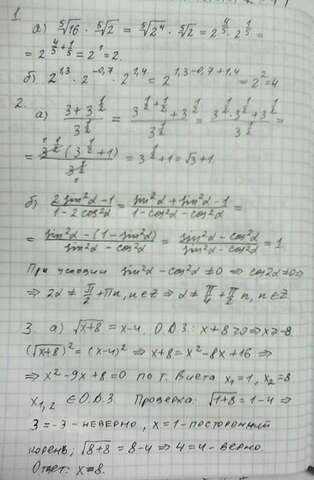 1
а) ⁵√16 · ⁵√2 = ⁵√2⁴ · ⁵√2 = 2^(4/5) · 2^(1/5) =
= 2^(4/5 + 1/5) = 2¹ = 2.
б) 2^1,3 · 2^-0,7 · 2^1,4 = 2^(1,3-0,7+1,4) = 2² = 4
2.
а) (3 + 3^(1/2)) / 3^(1/2) = (3^(1/2 + 1/2) + 3^(1/2)) / 3^(1/2) = (3^(1/2) · 3^(1/2) + 3^(1/2)) / 3^(1/2) =
= 3^(1/2) (3^(1/2) + 1) / 3^(1/2) = 3^(1/2) + 1 = √3 + 1.
б) (2 sin²α - 1) / (1 - 2cos²α) = (sin²α + sin²α - 1) / (1 - cos²α - cos²α) =
= (sin²α - (1 - sin²α)) / (sin²α - cos²α) = (sin²α - cos²α) / (sin²α - cos²α) = 1.
При условии sin²α - cos²α ≠ 0 ⇒ cos2α ≠ 0 ⇒
⇒ 2α ≠ π/2 + πn, n ∈ Z ⇒ α ≠ π/4 + π/2 n, n ∈ Z
3. а) √(x+8) = x-4. О.Д.З: x+8≥0 ⇒ x≥-8
(√(x+8))² = (x-4)² ⇒ x+8 = x²-8x+16 ⇒
⇒ x²-9x+8=0 по т. Виета x₁=1, x₂=8
x₁,₂ ∈ О.Д.З Проверка: √(1+8) = 1-4 ⇒
3 = -3 - неверно, x=1 - посторонний
корень; √(8+8) = 8-4 ⇒ 4=4 - верно
Ответ: x=8.